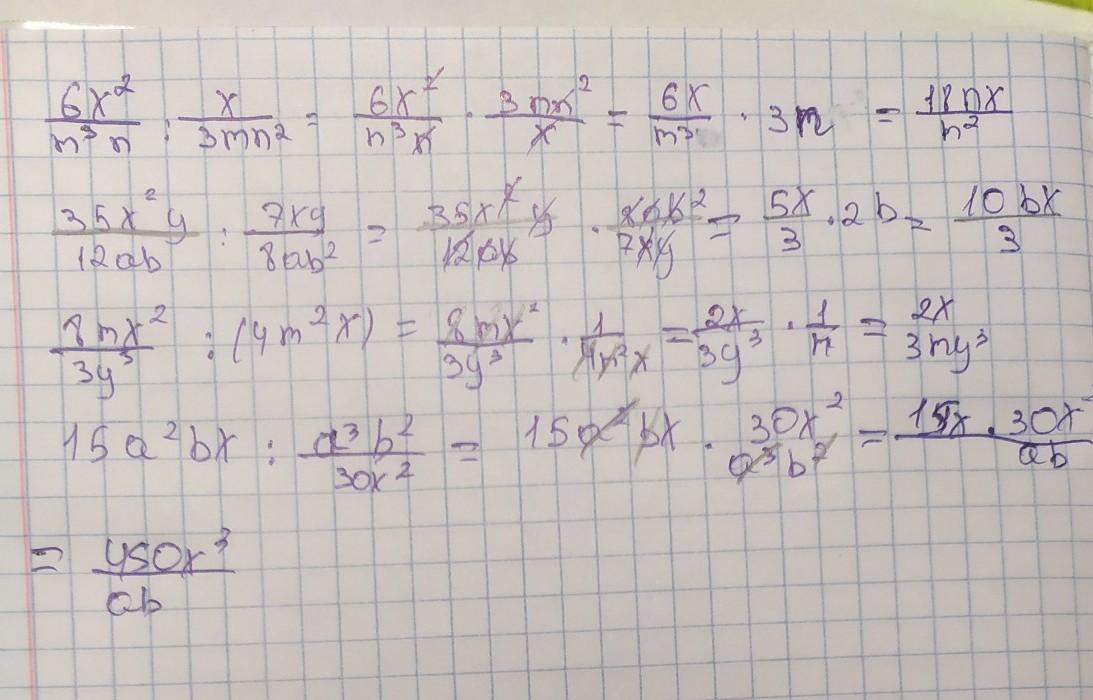 6x²/n³n : x/3mn² = 6x²/n³n · 3mn²/x = 6x/m³ · 3n = 18nx/n²
35x²y/12ab : 7xy/8ab² = 35x²y/12ab · 8ab²/7xy = 5x/3 · 2b = 10bx/3
8mx²/3y³ : (4m²x) = 8mx²/3y³ · 1/4m²x = 2x/3y³ · 1/n = 2x/3ny³
15a²bx : a³b²/30x² = 15a²bx · 30x²/a³b² = 15x·30x²/ab
= 450x³/ab